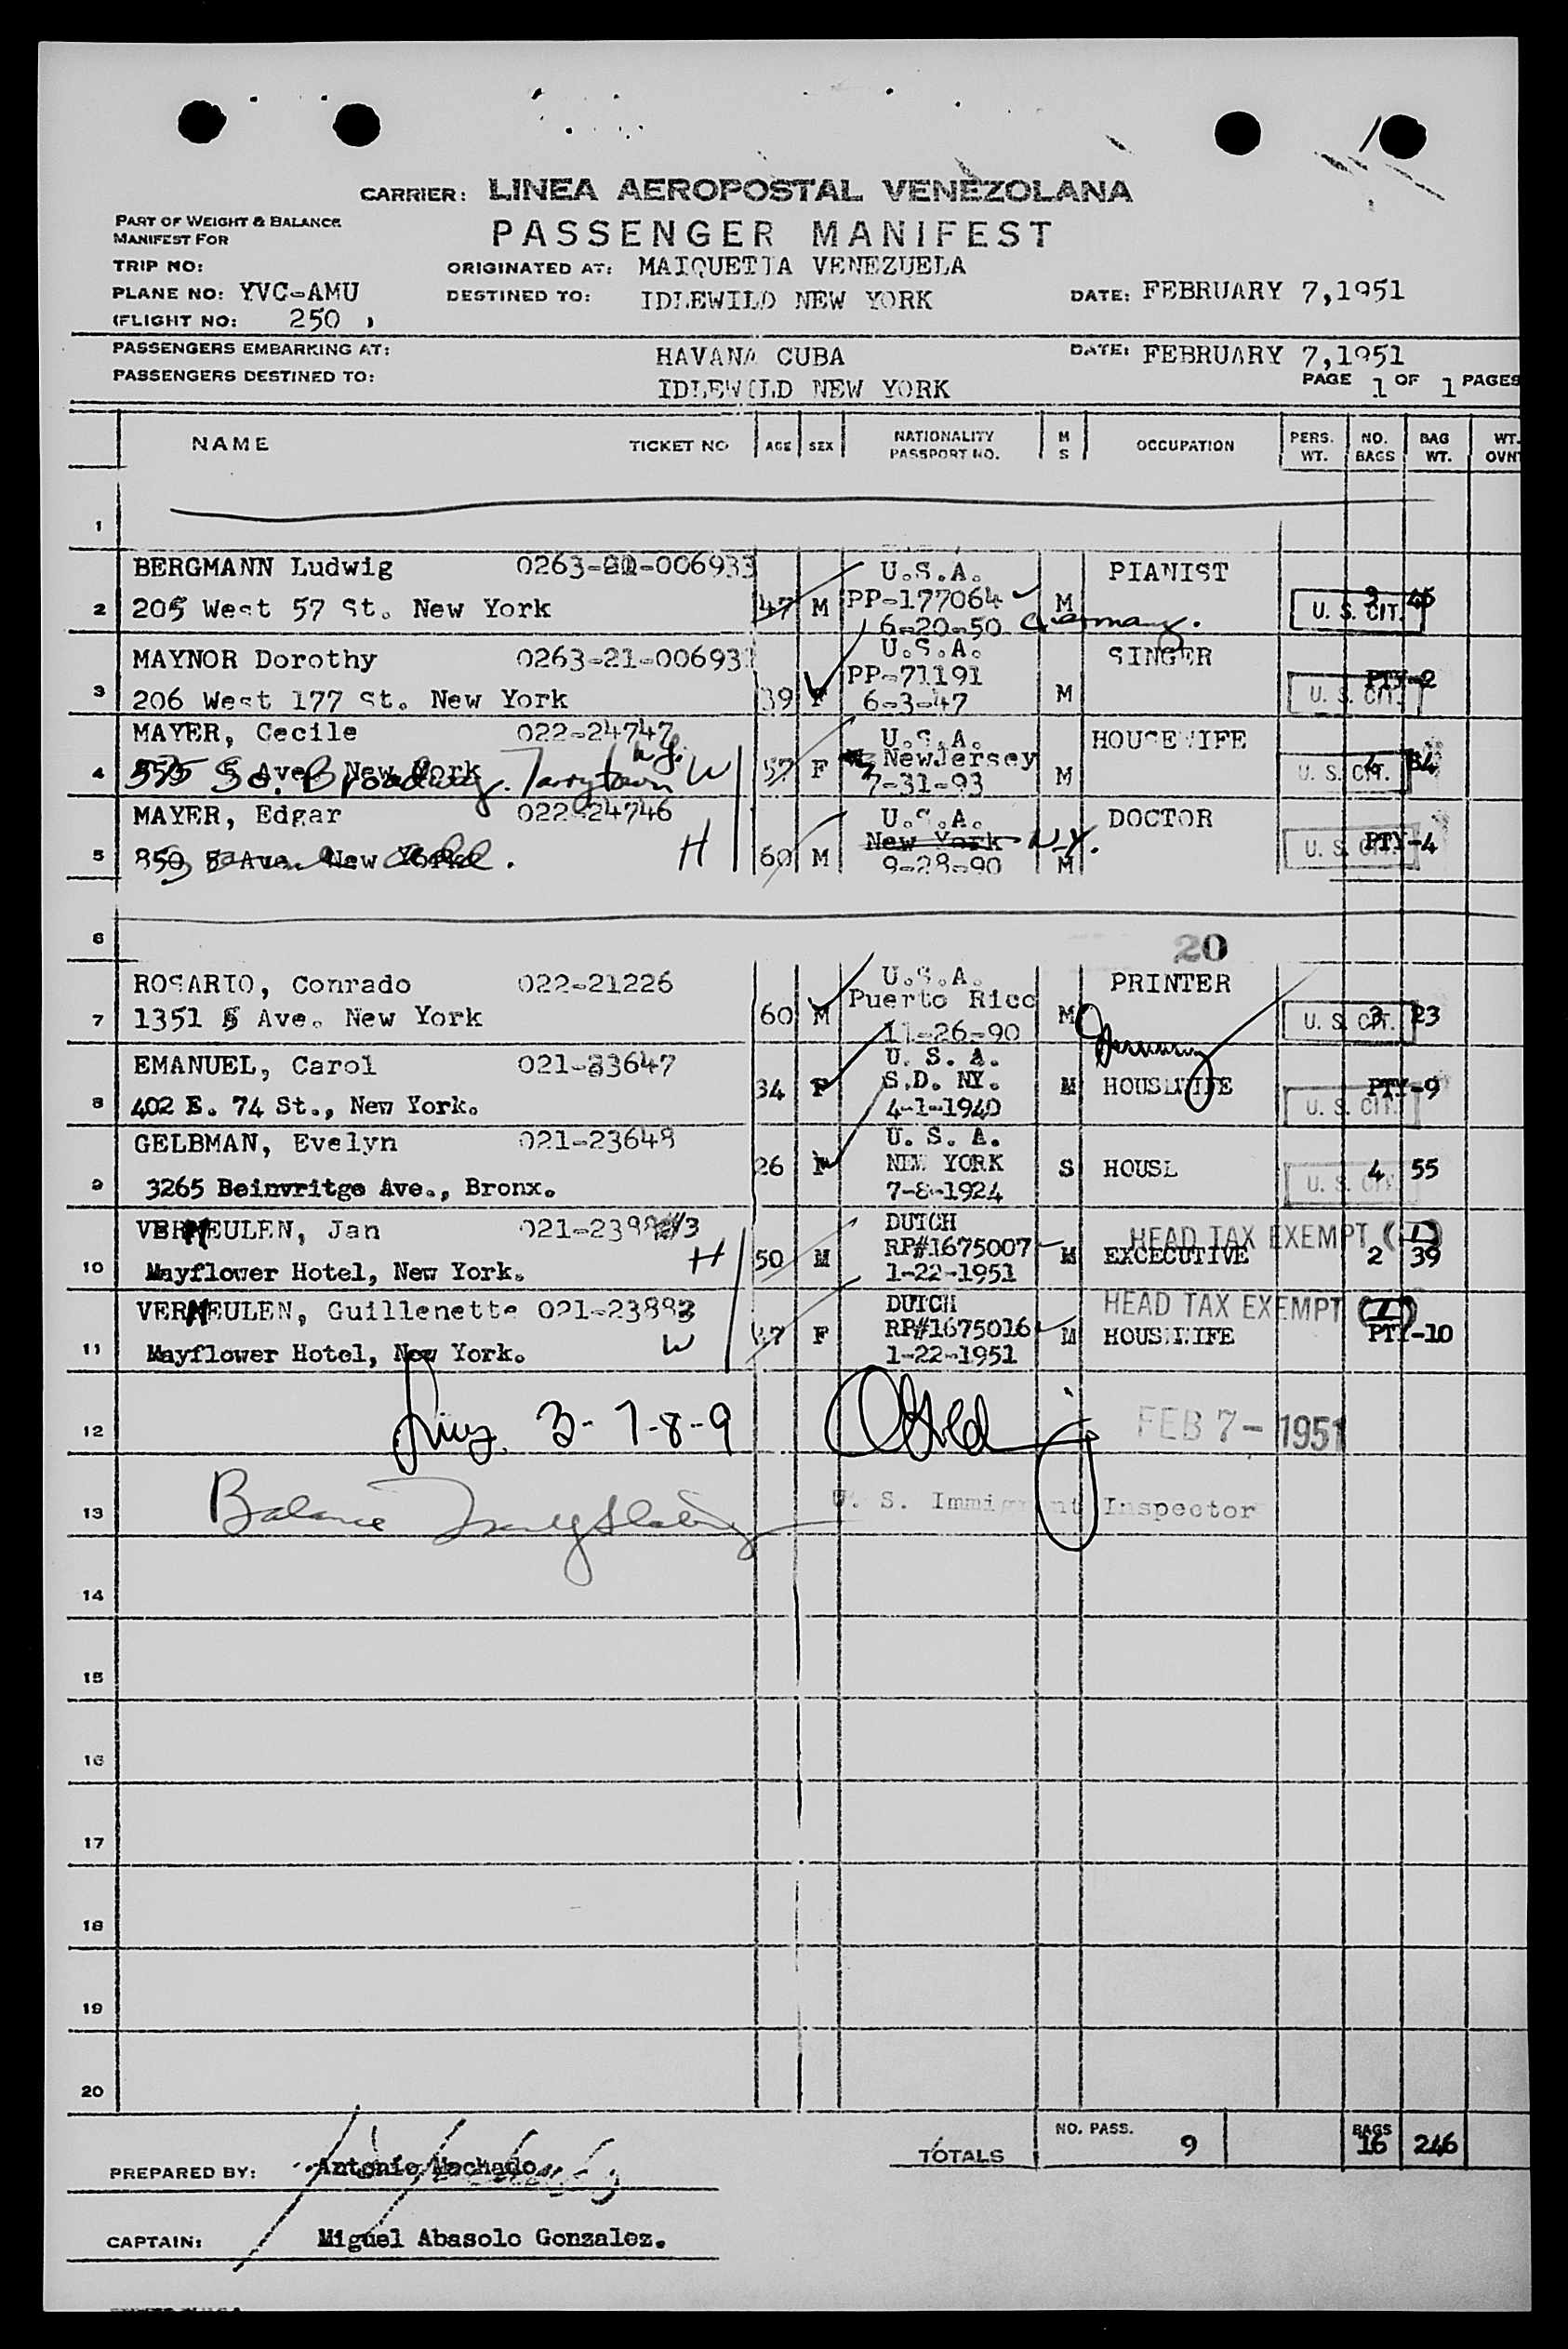 CARRIER: LINEA AEROPOSTAL VENEZOLANA
PART OF WEIGHT & BALANCE
MANIFEST FOR
PASSENGER MANIFEST
TRIP NO:
ORIGINATED AT: MAIQUETIA VENEZUELA
PLANE NO: YVC-AMU
DESTINED TO: IDLEWILD NEW YORK
DATE: FEBRUARY 7,1951
(FLIGHT NO: 250 )
PASSENGERS EMBARKING AT: HAVANA CUBA
DATE: FEBRUARY 7,1951
PASSENGERS DESTINED TO: IDLEWILD NEW YORK
PAGE 1 OF 1 PAGES
NAME TICKET NO AGE SEX NATIONALITY PASSPORT NO. M S OCCUPATION PERS. WT. NO. BAGS BAG WT. WT. OVN
1
BERGMANN Ludwig 0263-006933 U.S.A. PIANIST
2 205 West 57 St. New York 47 M PP-177064 M U. S. CIT. 3 45
6-20-50 Germany.
MAYNOR Dorothy 0263-21-00693 U.S.A. SINGER
3 206 West 177 St. New York 39 F PP-71191 M U. S. CIT. PTY-2
6-3-47
MAYER, Cecile 022-24747 U.S.A. HOUSEWIFE
4 5 Ave. New York So. Broadway. Tarrytown N.Y. W 57 F New Jersey M U. S. CIT. 4
7-31-93
MAYER, Edgar 022-24746 U.S.A. DOCTOR
5 850 Ave. New York H 60 M New York N.Y. M U. S. CIT. PTY-4
9-28-90
6
20
ROSARIO, Conrado 022-21226 U.S.A. PRINTER
7 1351 5 Ave. New York 60 M Puerto Rico M U. S. CIT. 3 23
11-26-90
EMANUEL, Carol 021-23647 U. S. A.
8 402 E. 74 St., New York. 34 F S.D. NY. M HOUSEWIFE U. S. CIT. PTY-9
4-1-1940
GELBMAN, Evelyn 021-23648 U. S. A.
9 3265 Beinvritge Ave., Bronx. 26 F NEW YORK S HOUSE U. S. CIT. 4 55
7-8-1924
VERMEULEN, Jan DUTCH HEAD TAX EXEMPT
10 Mayflower Hotel, New York. H 50 M RP#1675007 M EXCECUTIVE 2 39
1-22-1951
VERMEULEN, Guillenette 021-23883 DUTCH HEAD TAX EXEMPT
11 Mayflower Hotel, New York. W 47 F RP#1675016 M HOUSEWIFE PTY-10
1-22-1951
12 3-7-8-9 FEB 7- 1951
13 Balance U. S. Immigrant Inspector
14
15
16
17
18
19
20
TOTALS NO. PASS. 9 BAGS 16 246
PREPARED BY: Antonio Machado
CAPTAIN: Miguel Abasolo Gonzalez.